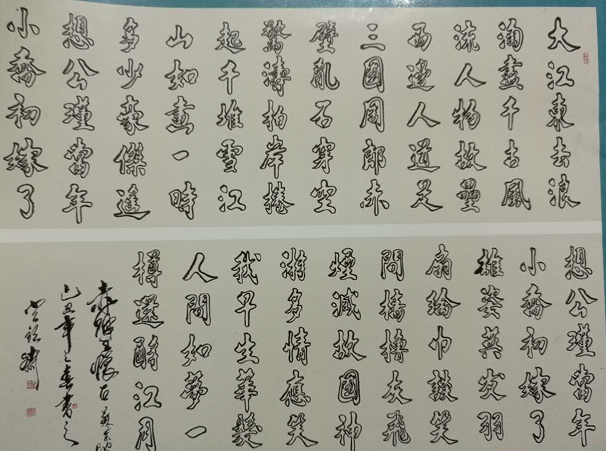 大江東去浪
淘盡千古風
流人物故壘
西邊人道是
三國周郎赤
壁亂石穿空
驚濤拍岸捲
起千堆雪江
山如畫一時
多少豪傑遙
想公瑾當年
小喬初嫁了
想公瑾當年
小喬初嫁了
雄姿英發羽
扇綸巾談笑
間檣櫓灰飛
煙滅故國神
游多情應笑
我早生華髮
人間如夢一
樽還酹江月
赤壁懷古